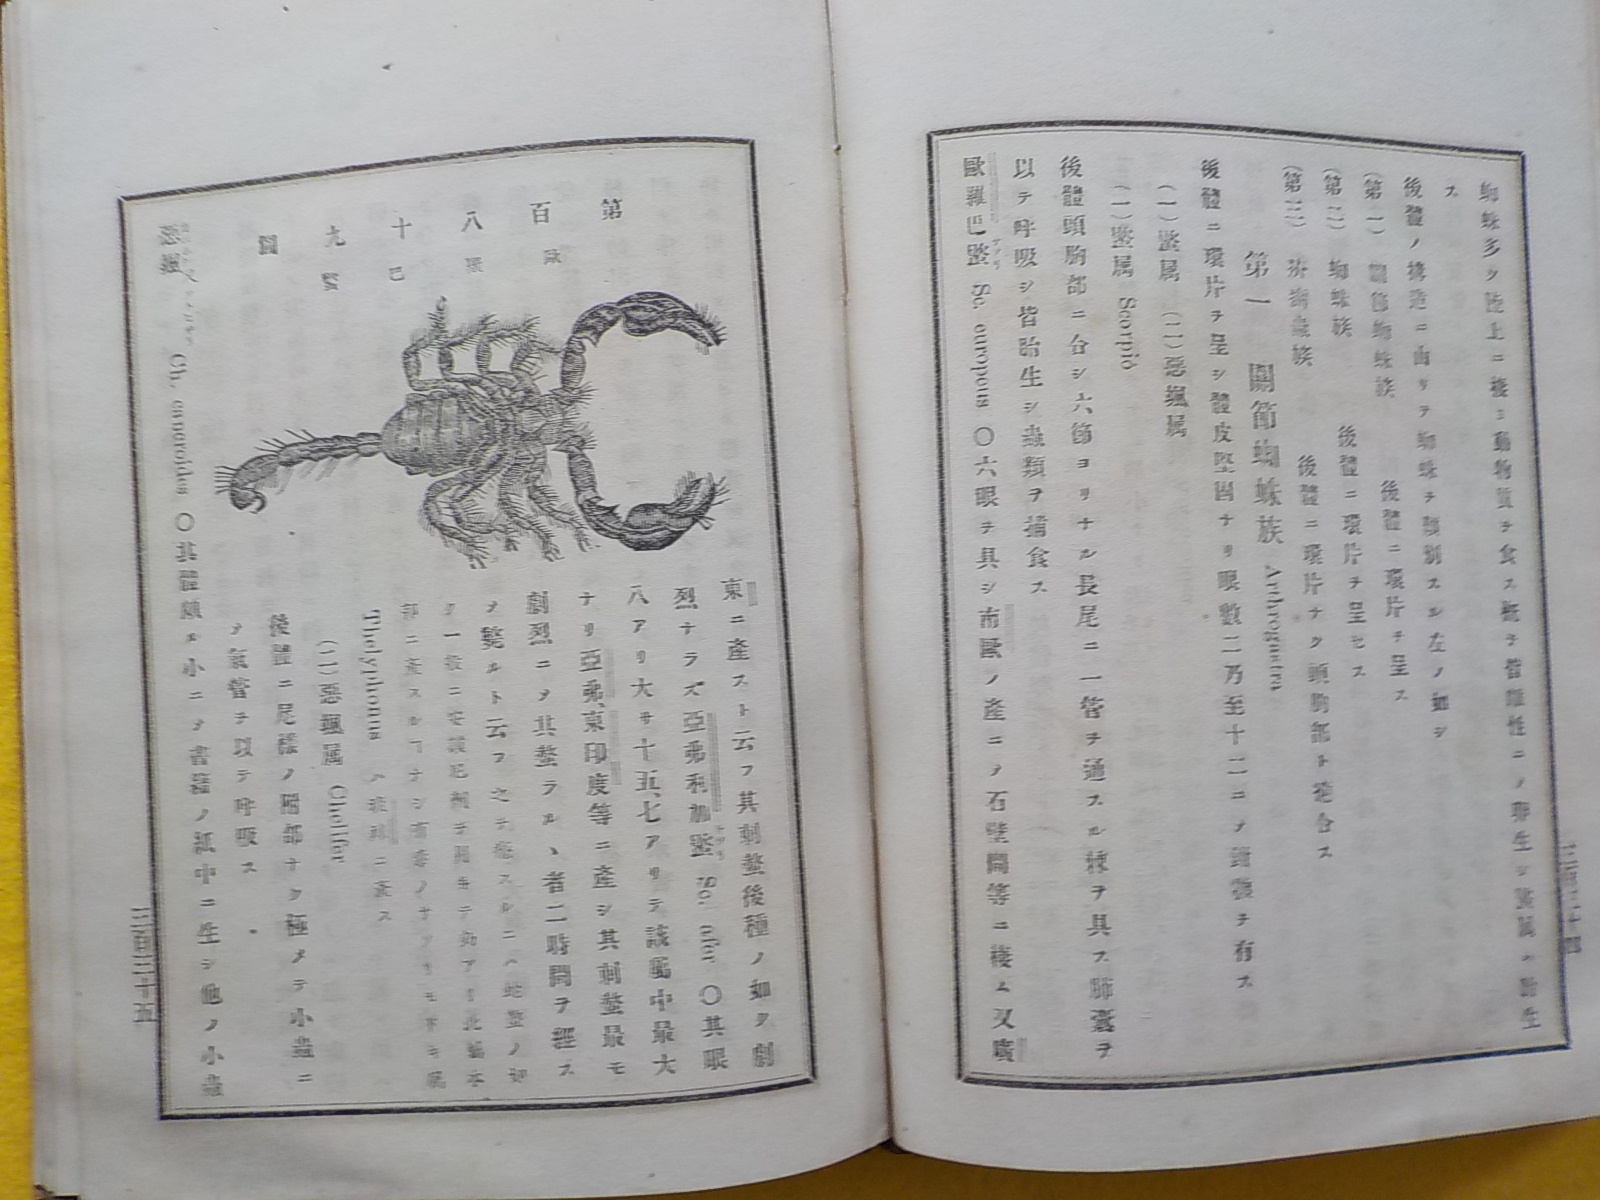 蜘蛛多ク陸上ニ棲ミ動物質ヲ食ス概子皆雌性ニノ卵生シ蠍属ハ胎生
ス
後體ノ構造ニ由リテ蜘蛛チ類別スル左ノ如シ
(第一) 關節蜘蛛族 後體ニ環片チ呈ス
(第二) 蜘蛛族 後體ニ環片チ呈セス
(第三) 族 後體ニ環片ナク頭胸部ト
第一 關節蜘蛛族 Arthrogastra
後體ニ環片ヲ呈シ體皮堅固ナリ眼數二乃至十二ニノ チ有ス
(一)蠍属 (二)惡颯属
(一)蠍属 Scorpio
後體頭胸部ニ合シ六節ヨリナル長尾ニ一管チ通スル棘ヲ具ス肺嚢ヲ
以テ呼吸シ皆胎生シ蟲類ヲ捕食ス
歐羅巴蠍 Sc. europeus 〇六眼チ具シ南歐ノ產ニノ石壁間等ニ棲ム又廣
三百三十四
第百八十九圖
歐羅巴蠍
東ニ產スト云フ其刺螫後種ノ如ク劇
烈ナラズ亞弗利加蠍 Sc. afer 〇其眼
八アリ大サ十五、七アリテ該屬中最大
ナリ亞弗、東印度等ニ產シ其刺螫最モ
劇烈ニノ其螫ラルヽ者二時間ヲ經ス
ノ斃ルト云フ之チ スルニハ蛇螫ノ如
ク一般ニ 劑チ用キテ効アリ此屬本
邦ニ產スル ナシ
Thelyphonus ハ琉球ニ產ス
(二)惡颯属 Chelifer
後體ニ尾樣ノ附部ナク極メテ小蟲ニ
ノ氣管チ以テ呼吸ス
惡颯 Ch. cancroides 〇其體頗ル小ニノ書籍ノ紙中ニ生シ他ノ小蟲
三百三十五